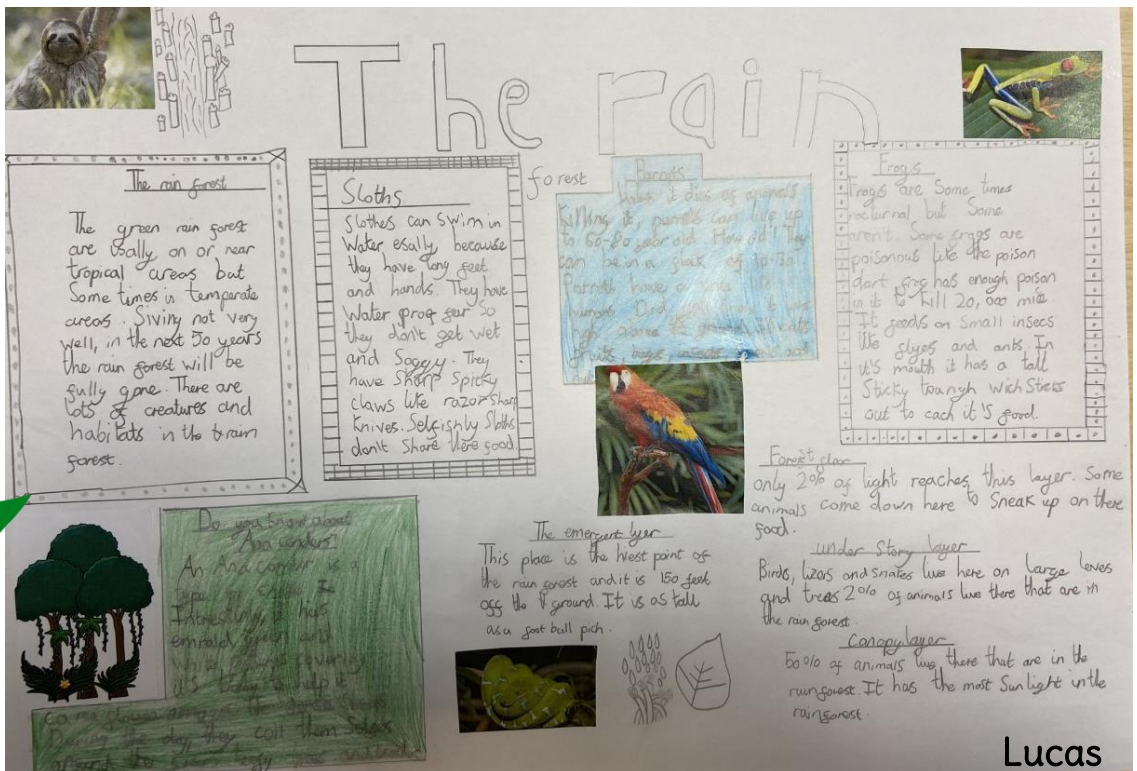 The rain
forest
The rain forest
The green rain forest
are usally on or near
tropical areas but
Some times in temperate
areas. Siving not very
well, in the next 50 years
the rain forest will be
fully gone. There are
lots of creatures and
habitats in the train
forest.
Sloths
Slothes can swim in
Water esally, because
they have long feet
and hands. They have
Water proof fur So
they don't get wet
and Soggy. They
have Sharp Spicky
claws like razor sharp
knives. Selfishly Sloths
don't share there food.
Parrots
it dies of animals
killing it, parrots can live up
to 60-80 year old. How old! They
can be in a flock of 10-30.
Parrots have a life
humans. Did
high above the ground. It eats
fruits, bugs, insects
Frogs
Frogs are Some times
nocturnal but Some
aren't. Some frogs are
poisonous like the poison
dart frog has enough poison
in it to kill 20,000 mice.
It feeds on Small insecs
like flyes and ants. In
it's mouth it has a tall
Sticky toungh wich Sticks
out to cach it's food.
Forest floor
only 2% of light reaches this layer. Some
animals come down here to Sneak up on there
food.
under Story layer
Birds, lizars and snakes live here on large leves
and trees 2% of animals live there that are in
the rain forest.
Canopy layer
50% of animals live there that are in the
rainforest. It has the most Sun light in the
rainforest.
The emergent lyer
This place is the hiest point of
the rain forest and it is 150 feet
off the ground. It is as tall
as a foot ball pich.
Do you know about
Anacondas?
An Anacondor is a
type of
Intrestingly, it has
emrald green and
it's body to help it
come down
During the day, they coil them Selves
around the green leafy
Lucas